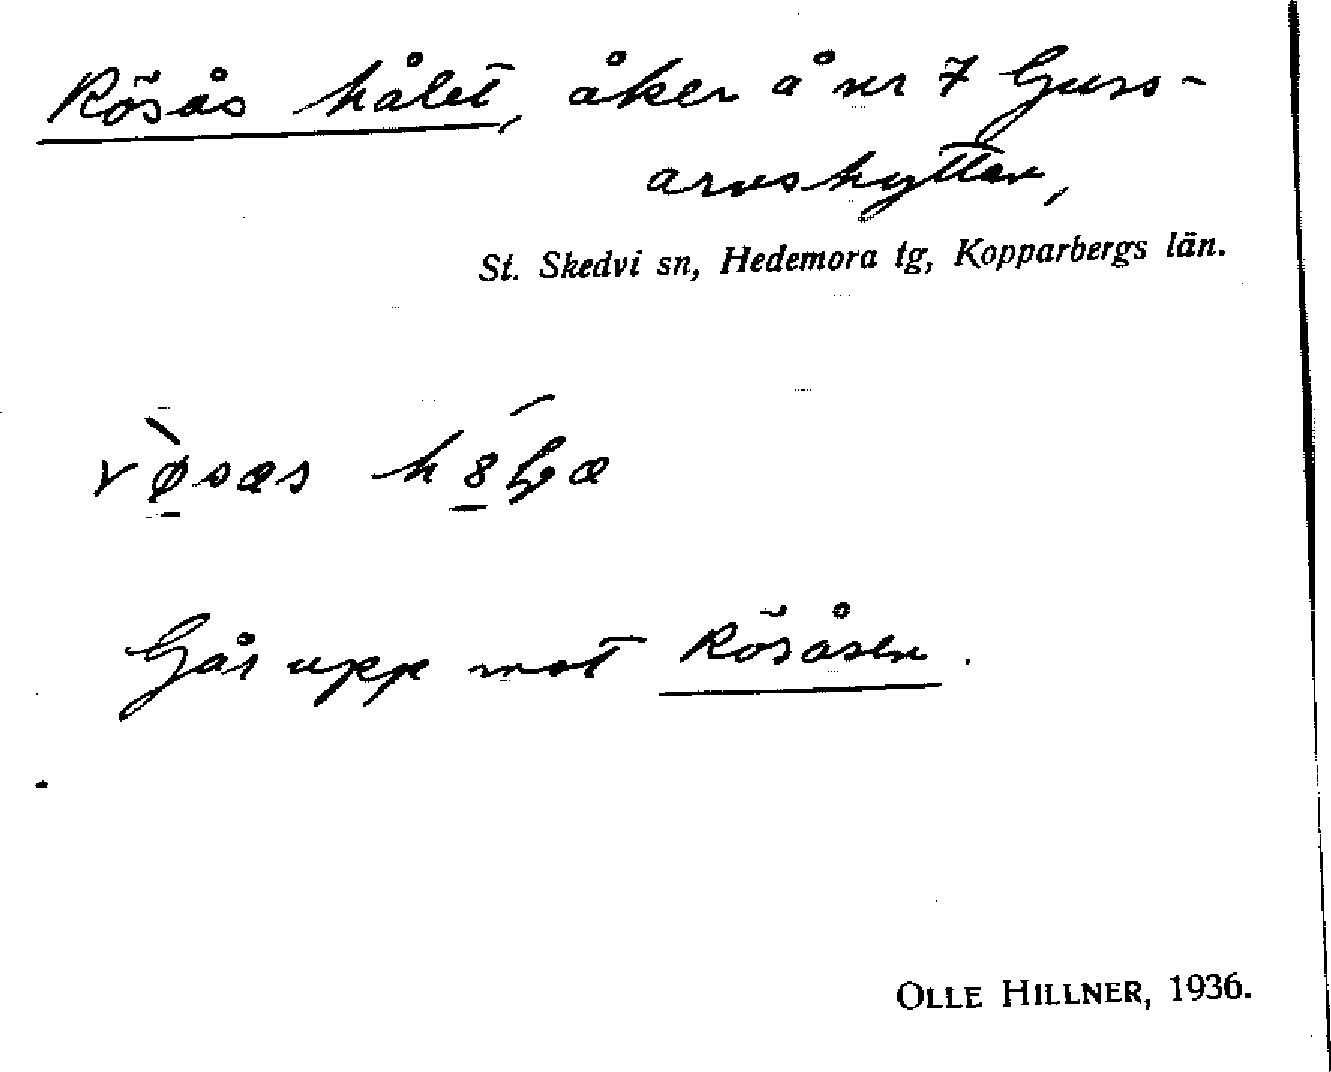 Rösås hålet, åker å nr 7 Guss-
arvshyttan,
St. Skedvi sn, Hedemora tg, Kopparbergs län.
Går upp mot Rösåsen.
OLLE HILLNER, 1936.